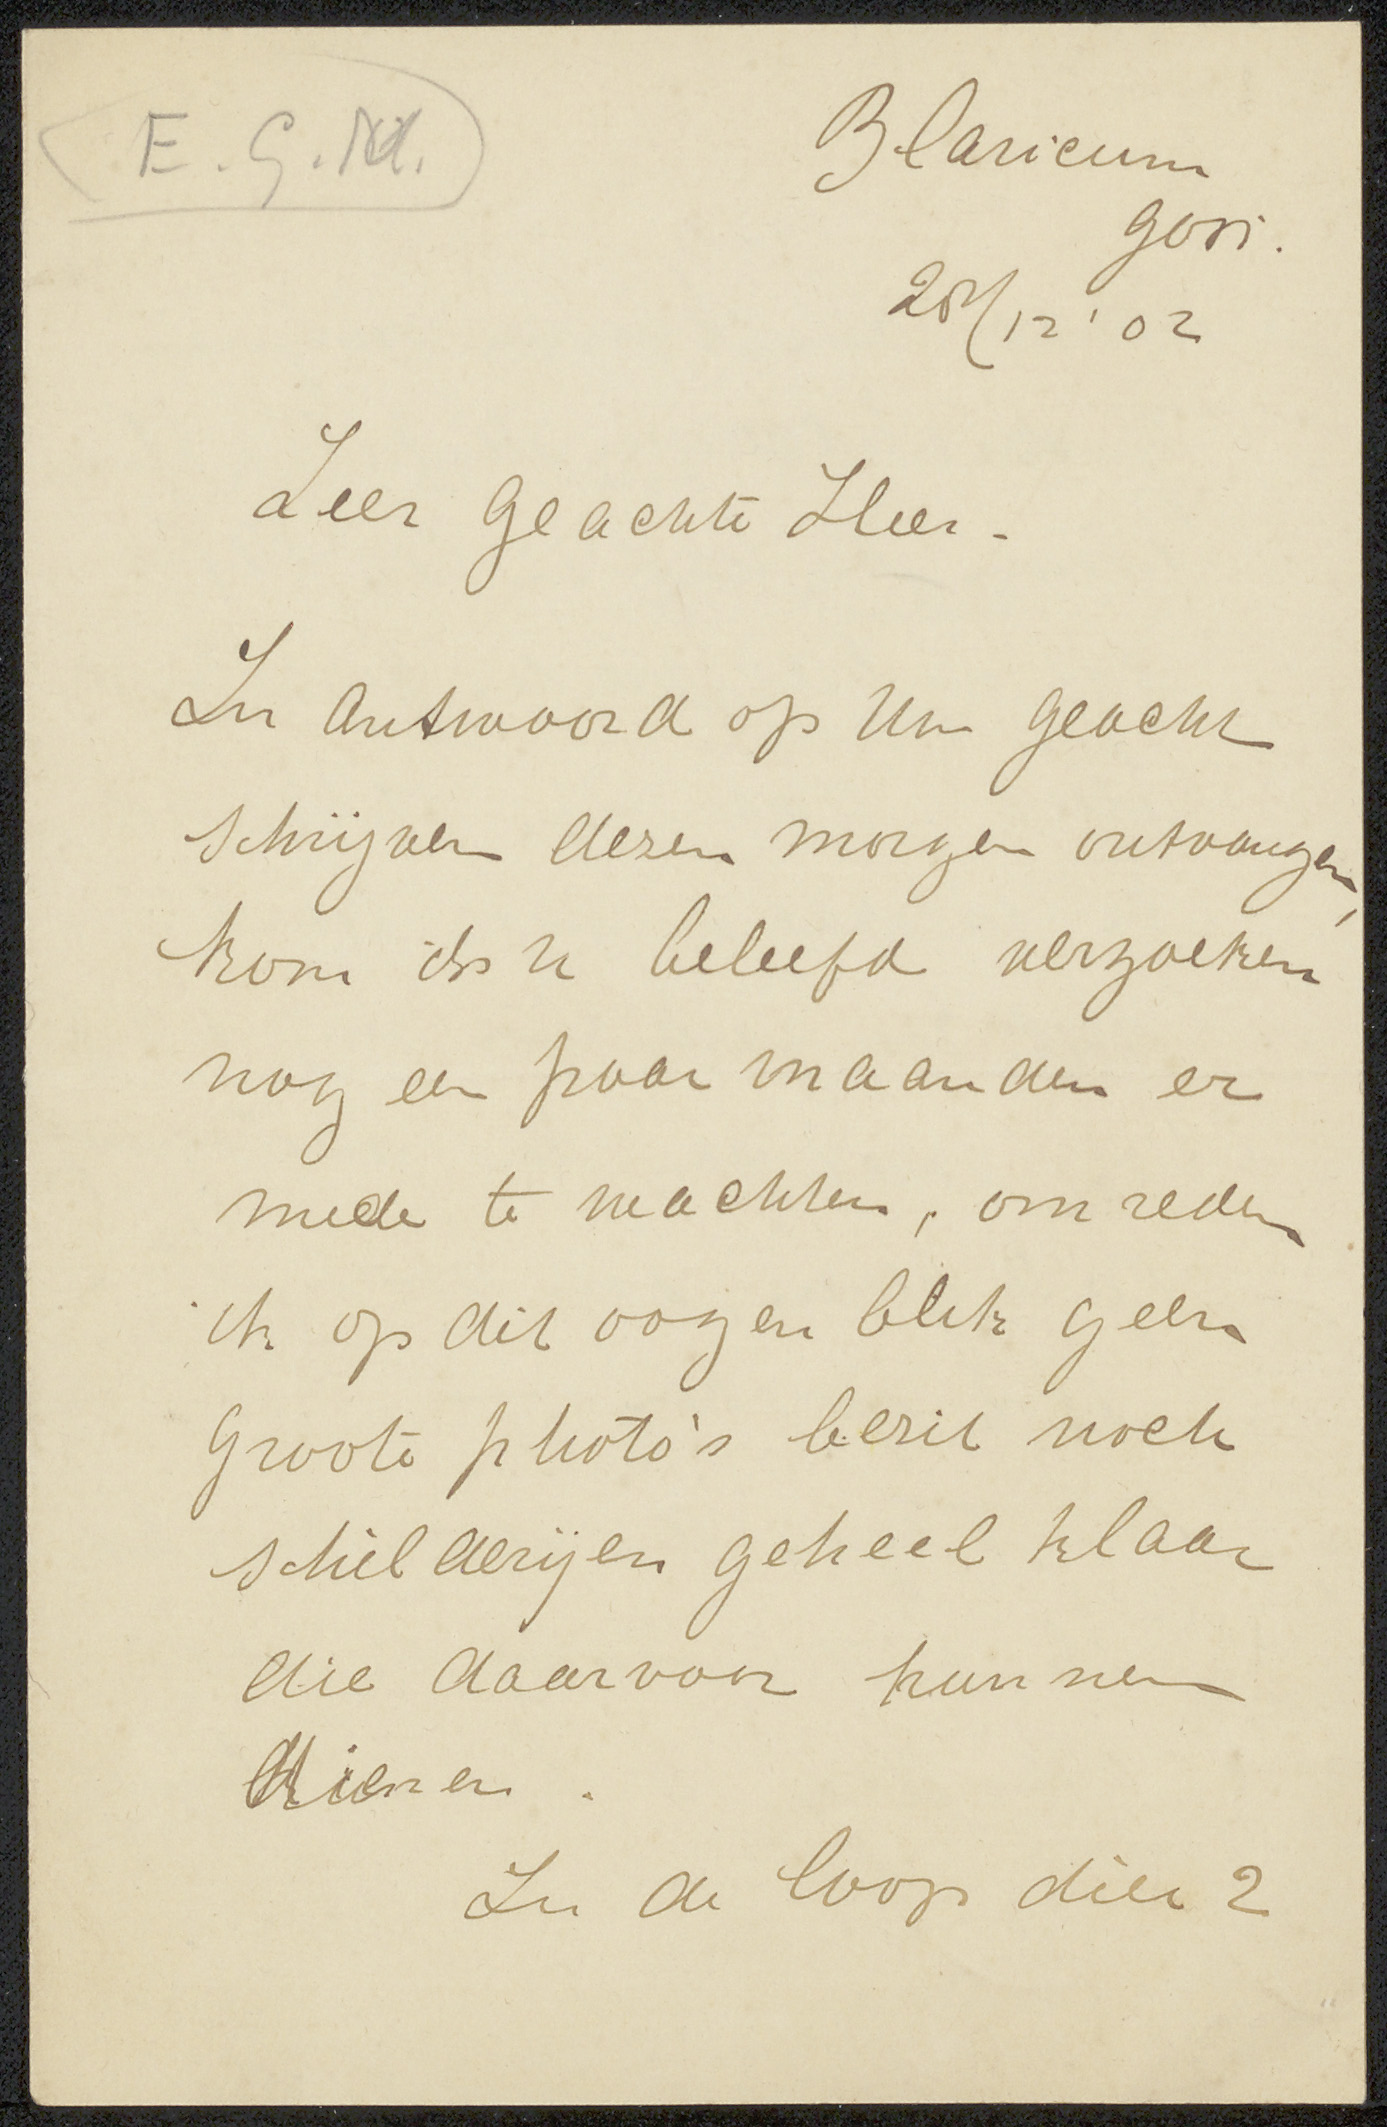 E. G. M.
Blaricum
Gooi.
28/12 '02
Zeer geachte Heer.
In antwoord op Uw geacht
schrijven dezen morgen ontvangen,
kom ik u beleefd verzoeken
nog een paar maanden er
mede te wachten, omreden
ik op dit oogenblik geen
groote photo's bezit noch
schilderijen geheel klaar
die daarvoor kunnen
dienen.
In de loop dier 2